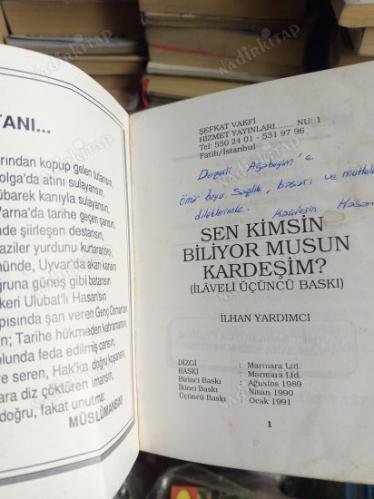 TANI...
arından kopup gelen tufansın,
olga'da atını sulayansın,
übarek kanıyla sulayansın,
Varna'da tarihe geçen şansın,
nde şiirleşen destansın,
aziler yurdunu kurtaransın,
nünde, Uyvar'da akan kansın
ğruna güneş gibi batansın
keri Ulubat'lı Hasan'sın
apısında şan veren Genç Osman'sın
n; Tarihe hükmeden kahramansın,
olunda feda edilmiş cansın,
re seren, Hak'ka doğru koşansın,
ara diz çöktüren imansın,
doğru, fakat unutma:
MÜSLÜMANSIN
ŞEFKAT VAKFI
HİZMET YAYINLARI....... NU: 1
Tel: 550 24 01 - 531 97 96
Fatih/İstanbul
Değerli Ağabeyim'e
ömür boyu sağlık, başarı ve mutluluk
dileklerimle. Kardeşin Hasan
SEN KİMSİN
BİLİYOR MUSUN
KARDEŞİM?
(İLÂVELİ ÜÇÜNCÜ BASKI)
İLHAN YARDIMCI
DİZGİ : Marmara Ltd.
BASKI : Marmara Ltd.
Birinci Baskı : Ağustos 1989
İkinci Baskı : Nisan 1990
Üçüncü Baskı : Ocak 1991
1
NadirKİTAP